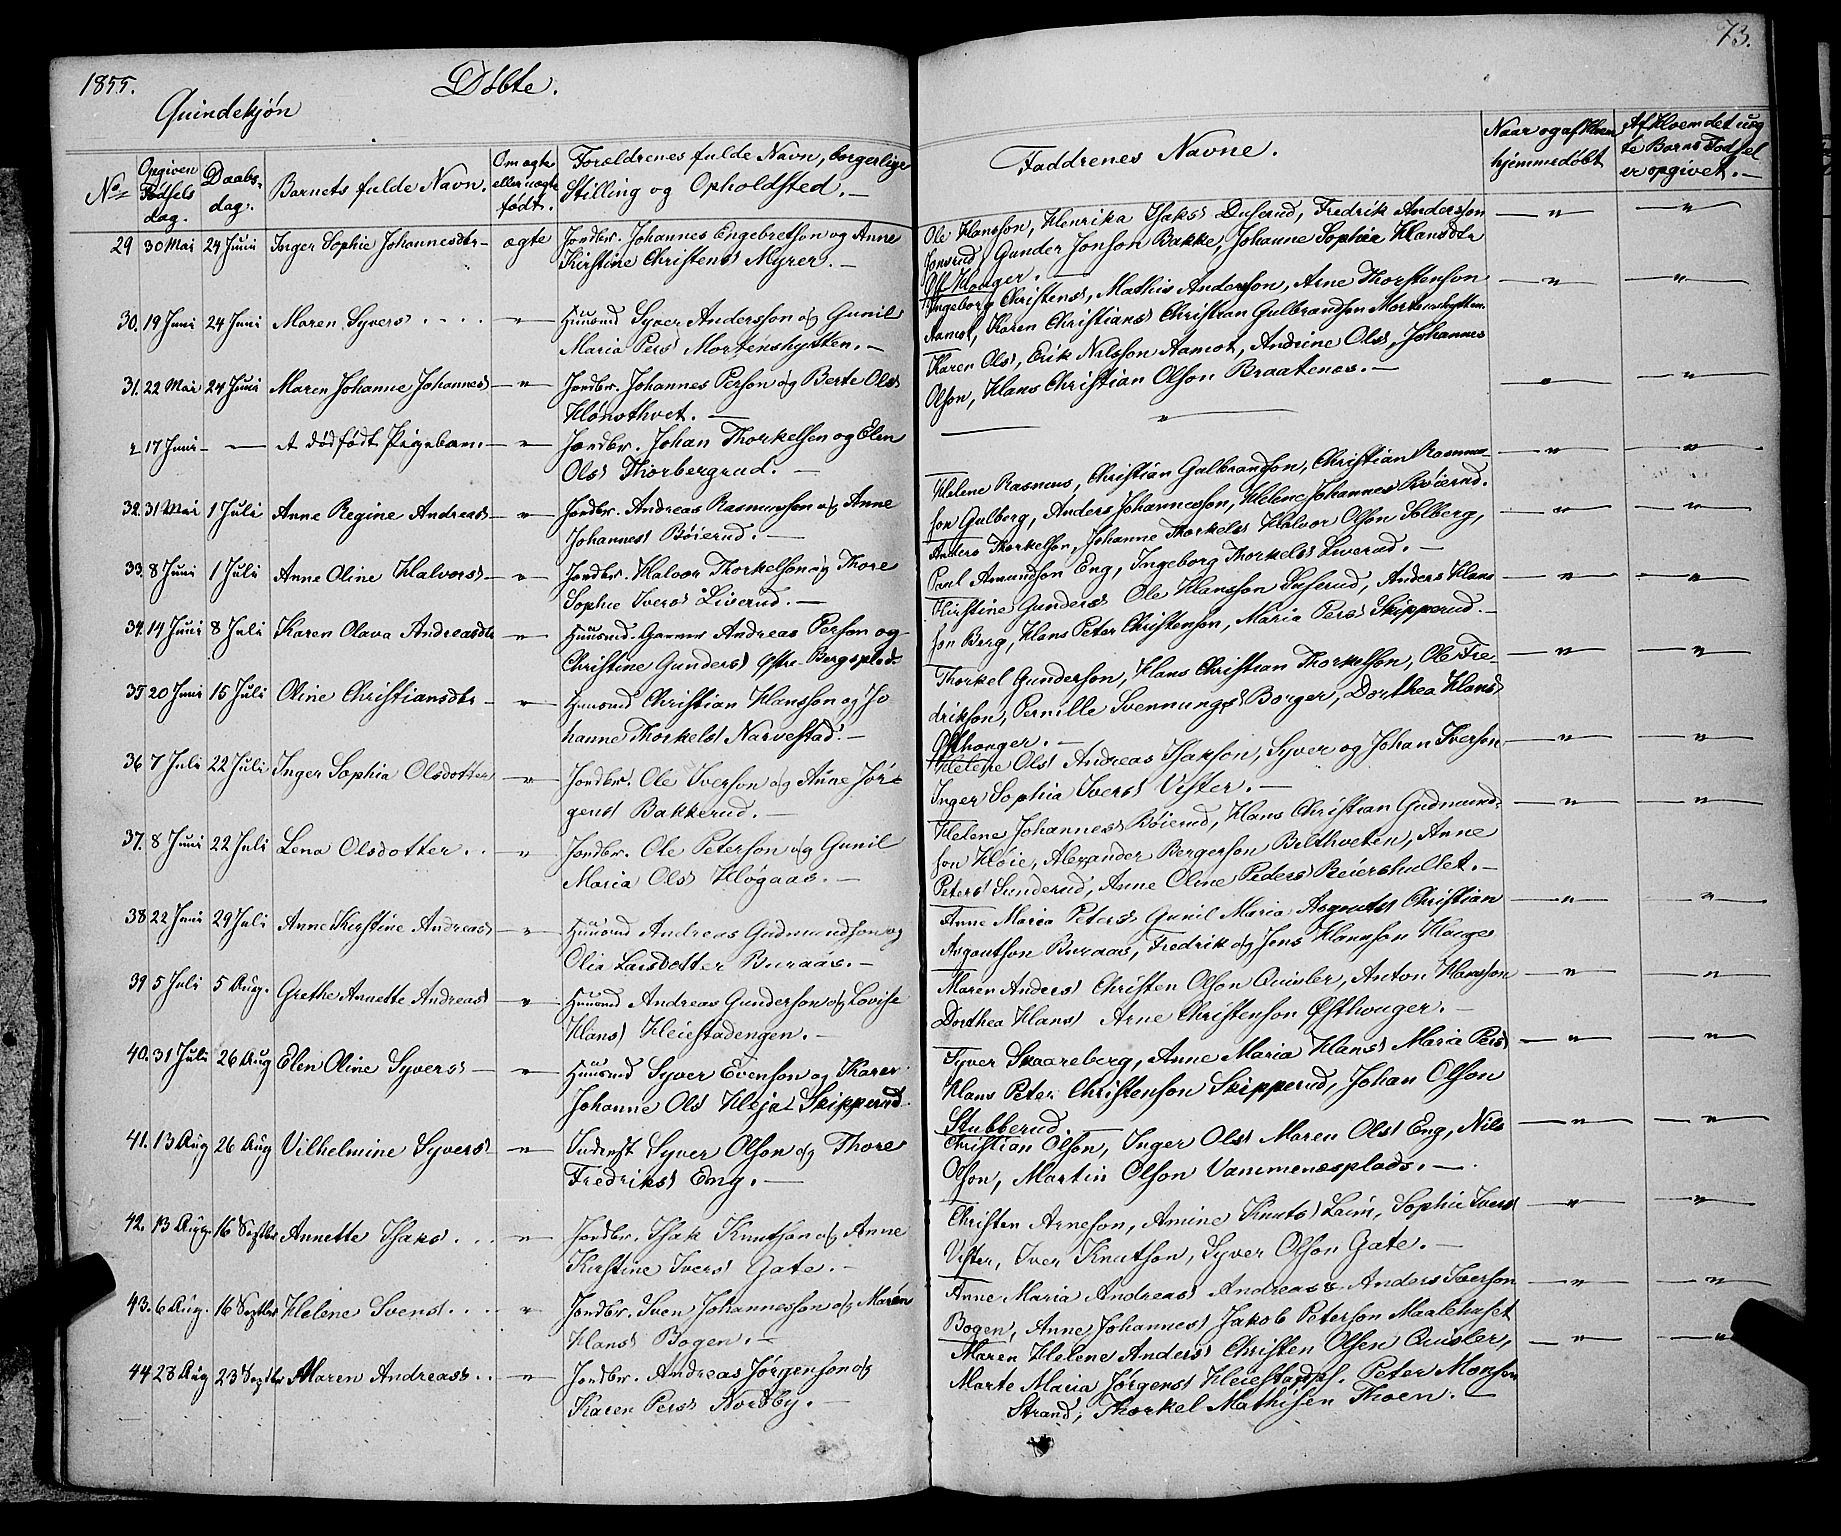 1855.
Døbte.
73.
Quindekjøn
No
Opgiven Fødsels dag.
Daabs-dag.
Barnets fulde Navn.
Om ægte eller uægte født.
Forældrenes fulde Navn, borgerlige Stilling og Opholdsted.
Faddrenes Navne.
Naar og af Hvem hjemmedøbt
Af Hvem det uæg te Barns Fødsel er opgivet.
29 30 Mai 24 Juni Inger Sophie Johannesdtr ægte Jordbr. Johannes Engebretson og Anne
Kirstine Christens Myrer.
Ole Hansson, Henrika Isaks Duserud, Fredrik Andersson
Jonsrud, Gunder Jonson Bakke, Johanne Sophie Hansdtr
Ø Houger.
30. 19 Juni 24 Juni Maren Syvers Huusmd Syver Andersson og Gunil
Maria Pers Mortenshytten.
Ingeborg Christens, Mathis Anderson, Arne Thorstenson
Aamot, Karen Christians Christian Gulbrandson Mortenshytten.
31. 22 Mai 24 Juni Maren Johanne Johannes Jordbr. Johannes Person og Berte Ols
Hønsthvet.
Karen Ols, Erik Nilsson Aamot, Andrine Ols, Johannes
Olson, Hans Christian Olson Braatenes.
2 17 Juni Et dødfødt Pigebarn Jordbr. Johan Thorkelsen og Elen
Ols Thorbergrud.
32. 31 Mai 1 Juli Anne Regine Andreas Jordbr. Andreas Rasmusson og Anne
Johannes Bøierud.
Helene Rasmus, Christian Gulbrandson, Christian Rasmus
son Gulberg, Anders Johannesson, Helene Johannes Bøierud.
33. 8 Juni 1 Juli Anne Oline Halvors Jordbr. Halvor Thorkelson og Thore
Sophie Ivers Liverud.
Anders Thorkelson, Johanne Thorkels Halvor Olson Solberg,
Paul Amundson Eng, Ingeborg Thorkels Liverud.
34. 14 Juni 8 Juli Karen Olava Andreasdtr Huusmd. Garver Andreas Person og
Christine Gunders Østre Bergsplads
Kirstine Gunders Ole Hansson Duserud, Anders Hans
son Berg, Hans Peter Christenson, Maria Pers Skipperud.
35 20 Juni 15 Juli Oline Christiansdtr Huusmd Christian Hansson og Jo
hanne Thorkels Narvestad.
Thorkel Gunderson, Hans Christian Thorkelson, Ole Fre-
drikson, Pernille Svennungs Borger, Dorthea Hans
Østhouger.
36 7 Juli 22 Juli Inger Sophia Olsdotter Jordbr. Ole Iverson og Anne Jør-
gens Bakkerud.
Helene Ols Andreas Isakson, Syver og Johan Iverson
Inger Sophia Ivers Vister.
37. 8 Juni 22 Juli Lena Olsdotter Jordbr. Ole Peterson og Gunil
Maria Ols Høgaas.
Helene Johannes Bøierud, Hans Christian Gudmund-
son Høie, Alexander Bergerson Bilthveten, Anne
Peters Sunderud, Anne Oline Peders Reiershullet.
38 22 Juni 29 Juli Anne Kirstine Andreas Huusmd Andreas Gudmundson og
Olia Larsdotter Buraas.
Anne Maria Peters Gunil Maria Asgouts Christian
Asgoutson Buraas, Fredrik og Jens Hansson Houge
39 5 Juli 5 Aug. Grethe Annette Andreas Huusmd Andreas Gunderson og Lovise
Hans Heiestadengen.
Maren Anders Christen Olson Quisler, Anton Hansson
Dorthea Hans Arne Christenson Østhouger.
40. 31 Juli 26 Aug Elen Oline Syvers Huusmd Syver Evenson og Karen
Johanne Ols Heja Skipperud
Syver Skaareberg, Anne Maria Hans Maria Pers
Hans Peter Christenson Skipperud, Johan Olson
Stubberud.
41. 13 Aug 26 Aug Vilhelmine Syvers Inderst Syver Olson og Thore
Fredriks Eng.
Christian Olson, Inger Ols Maren Ols Eng, Nils
Olson, Martin Olson Vammenæsplads.
42. 13 Aug 16 Septbr Annette Isaks Jordbr. Isak Knutson og Anne
Kirstine Ivers Gate.
Christen Arneson, Amine Knuts Leim, Sophie Ivers
Vister, Iver Knutson, Syver Olson Gate.
43. 6 Aug. 16 Septbr Helene Svens Jordbr. Sven Johannesson og Maren
Hans Bogen.
Anne Maria Andreas Andreas & Anders Iverson
Bogen, Anne Johannes Jakob Peterson Maalehuset
44 28 Aug 23 Septbr Maren Andreas Jordbr. Andreas Jørgenson og
Karen Pers Nordby.
Maren Helene Anders Christen Olsen Quisler,
Marte Maria Jørgens Heiestadpl. Peter Monsen
Strand, Thorkel Mathisen Thoen.